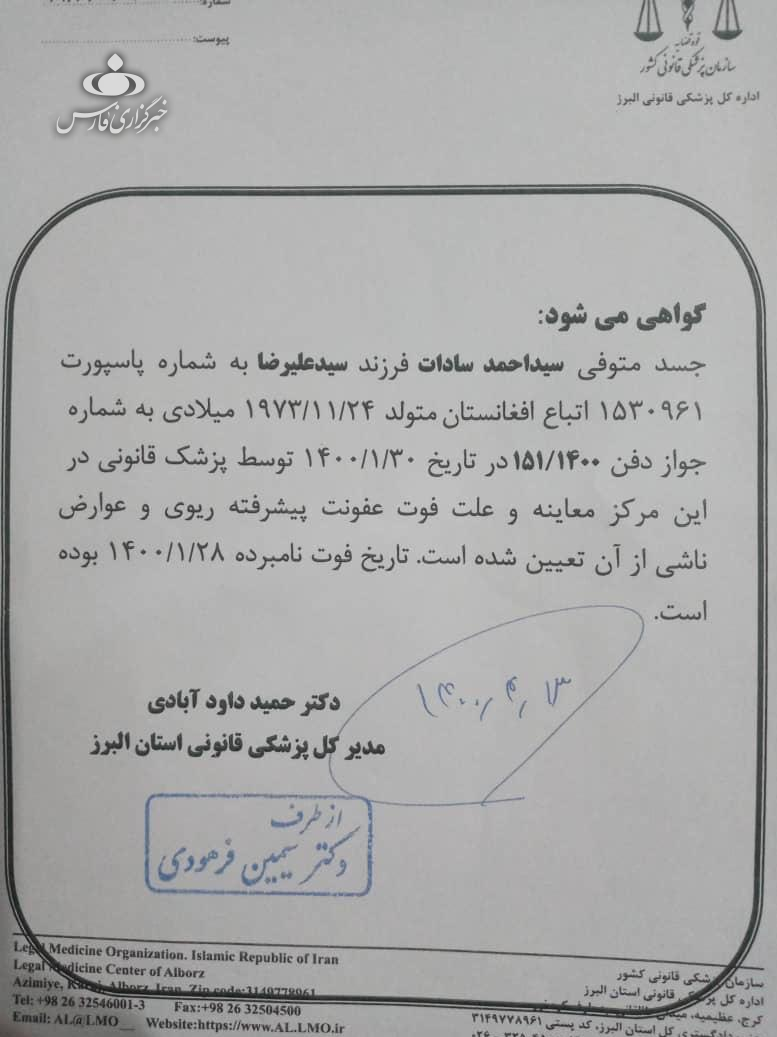 شماره:
پیوست:
قوه قضاییه
سازمان پزشکی قانونی کشور
اداره کل پزشکی قانونی البرز
خبرگزاری فارس
گواهی می شود:
جسد متوفی سیداحمد سادات فرزند سیدعلیرضا به شماره پاسپورت
۱۵۳۰۹۶۱ اتباع افغانستان متولد ۱۹۷۳/۱۱/۲۴ میلادی به شماره
جواز دفن ۱۵۱/۱۴۰۰ در تاریخ ۱۴۰۰/۱/۳۰ توسط پزشک قانونی در
این مرکز معاینه و علت فوت عفونت پیشرفته ریوی و عوارض
ناشی از آن تعیین شده است. تاریخ فوت نامبرده ۱۴۰۰/۱/۲۸ بوده
است.
دکتر حمید داود آبادی
مدیر کل پزشکی قانونی استان البرز
از طرف
دکتر سیمین فرهودی
Legal Medicine Organization. Islamic Republic of Iran
Legal Medicine Center of Alborz
Azimiye, Karaj, Alborz, Iran, Zip code:3149778961
Tel: +98 26 32546001-3 Fax:+98 26 32504500
Email: AL@LMO Website:https://www.AL.LMO.ir
سازمان پزشکی قانونی کشور
اداره کل پزشکی قانونی استان البرز
کرج، عظیمیه، میدان
دادگستری کل استان البرز، کد پستی ۳۱۴۹۷۷۸۹۶۱